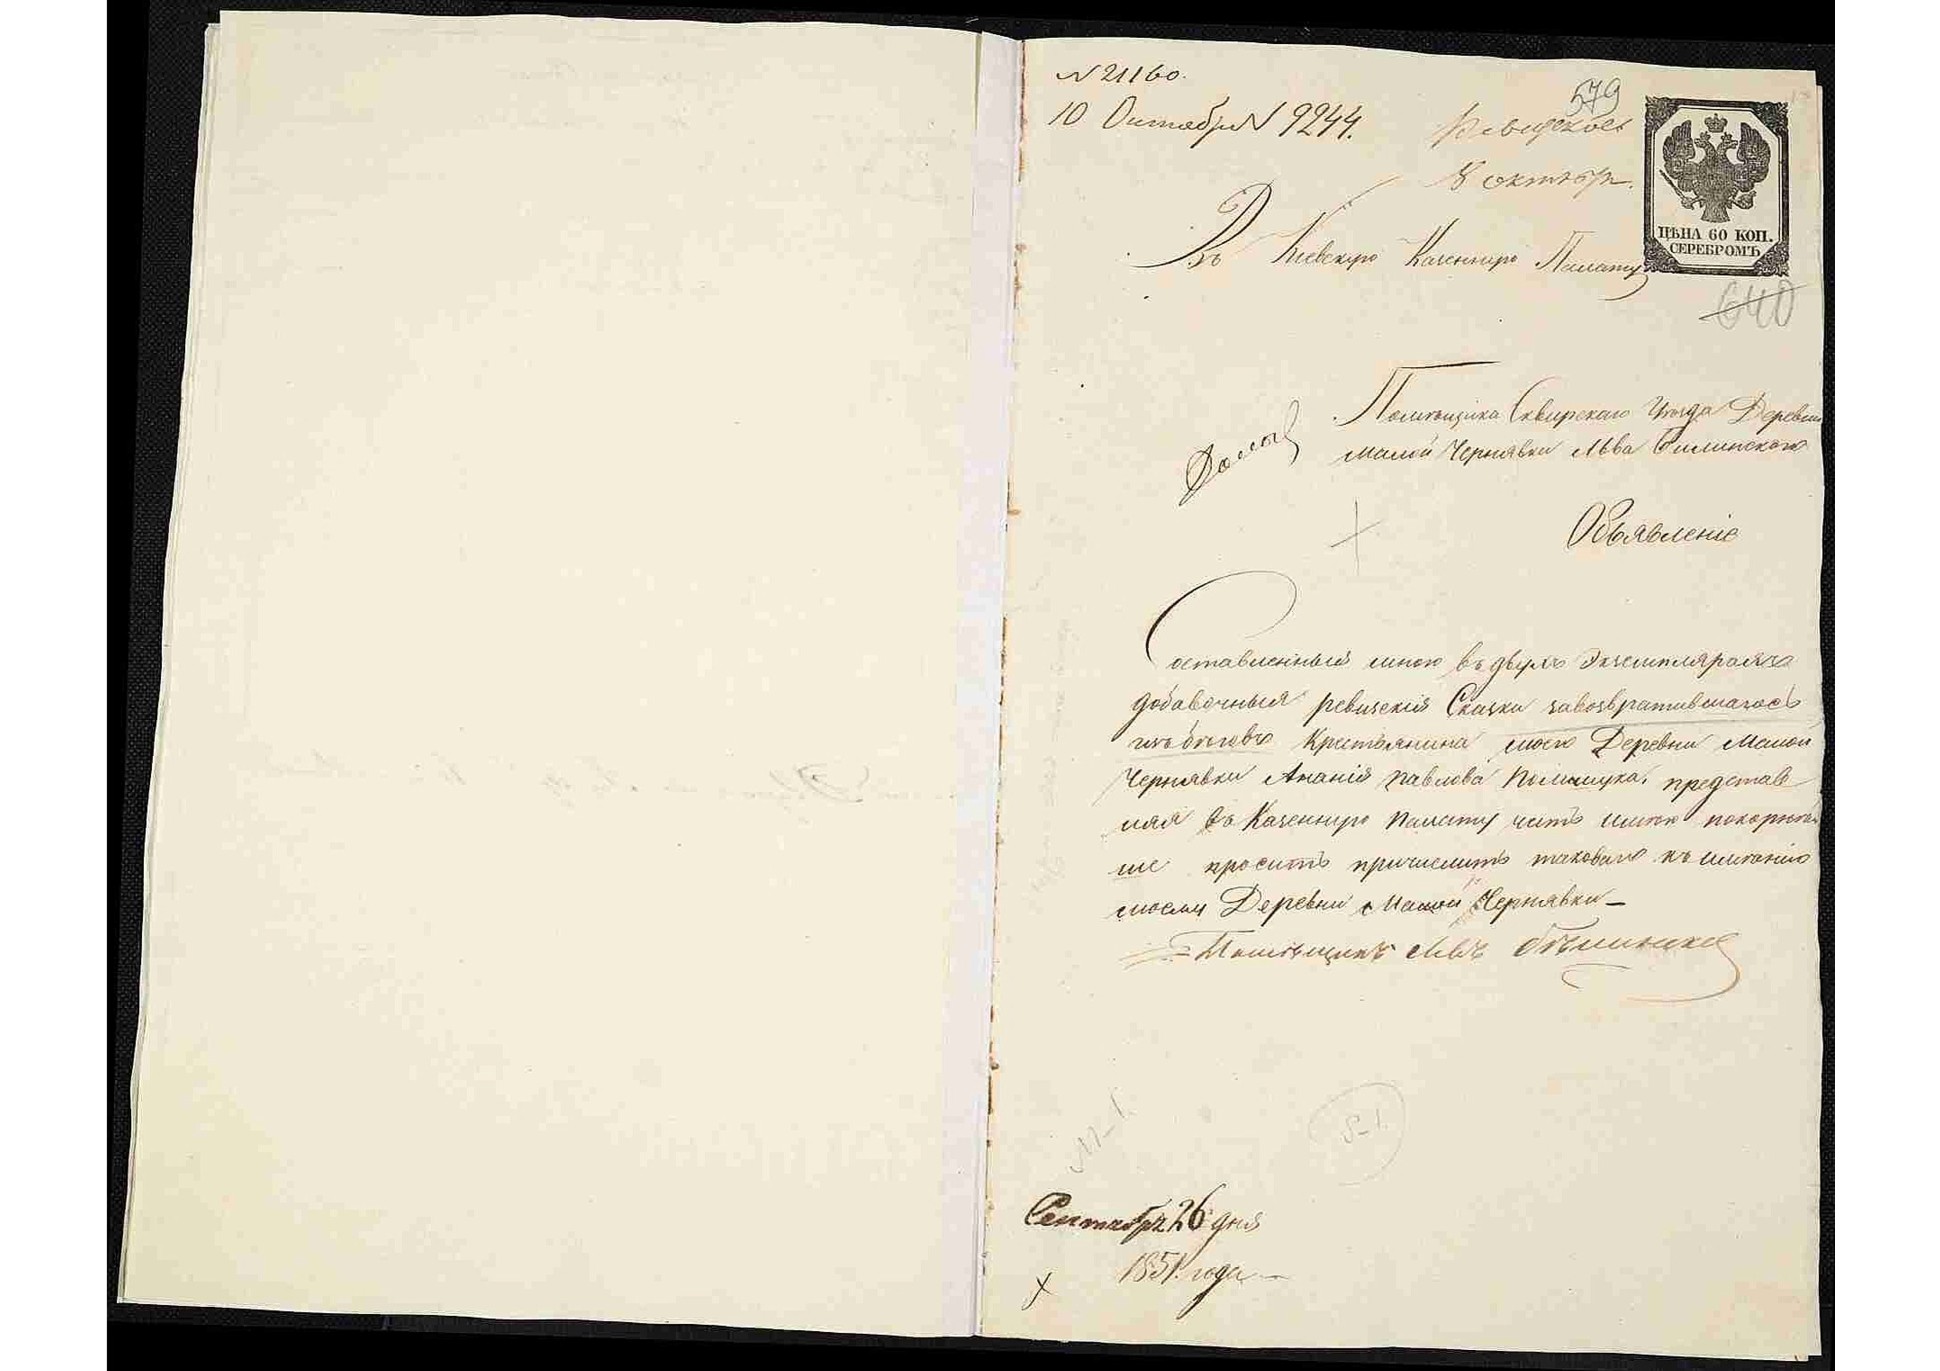 N 21160.
10 Октября N 9244.
579
8 октябр.
ЦѢНА 60 КОП.
СЕРЕБРОМЪ
Въ Кіевскую Казенную Палату
640
Помѣщика Сквирскаго Уѣзда Деревни
малой Чернявки Льва Билинскаго
Объявленіе
Составленный мною въ двухъ Экземплярахъ
добавочныя ревизскій Сказки завозвратившагось
изъ бѣговъ Крестьянина моей Деревни Малой
Чернявки Ананія Павлова Полищука, представ
ляя въ Казенную Палату честь имѣю покорнѣй
ше просить причислить таковаго къ имѣнію
моему Деревни Малой Чернявки —
Помѣщикъ Левъ Бѣлинскій
Сентября 26 дня
1851 года —